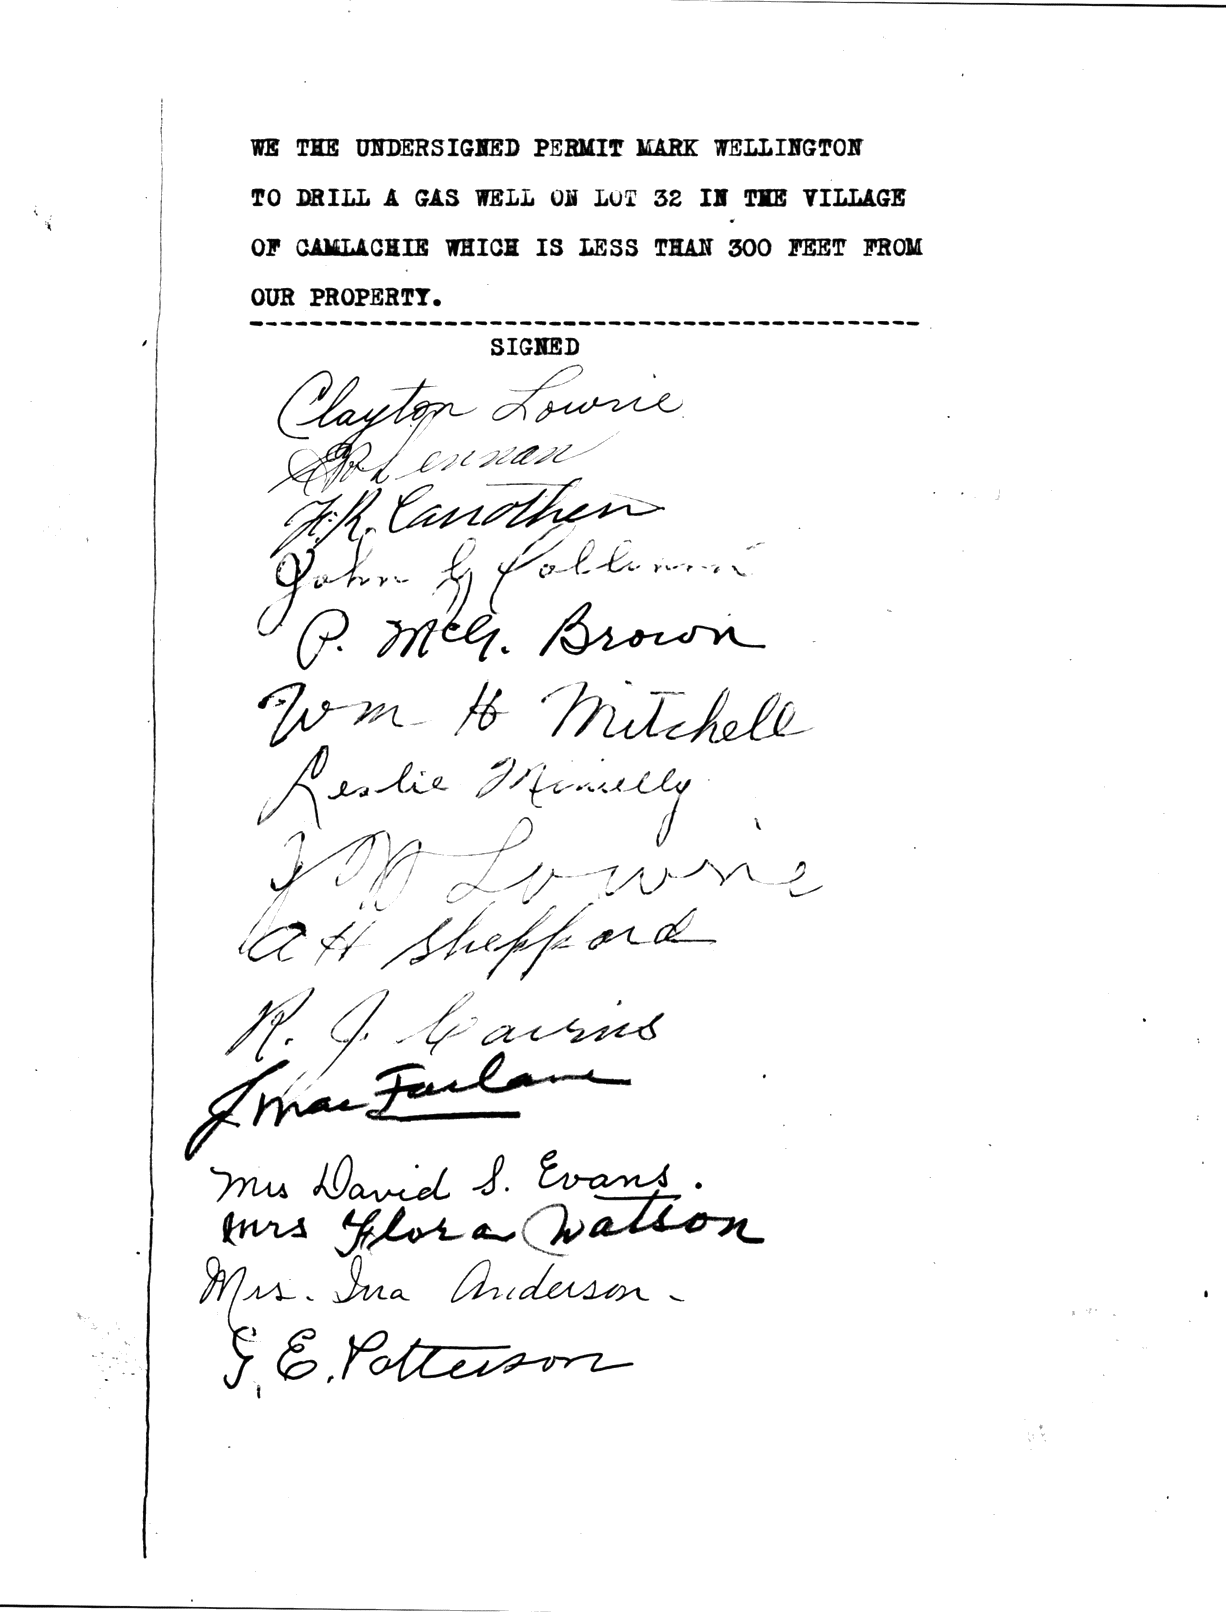 WE THE UNDERSIGNED PERMIT MARK WELLINGTON
TO DRILL A GAS WELL ON LOT 32 IN THE VILLAGE
OF CAMLACHIE WHICH IS LESS THAN 300 FEET FROM
OUR PROPERTY.
SIGNED
Clayton Lowrie
Lennan
F.R. Carrothers
John G
P. McG. Brown
Wm H Mitchell
Leslie Minielly
Lowrie
A H Sheppard
R. J. Cairns
J MacFarlane
Mrs David S. Evans.
Mrs Flora Watson
Mrs. Ina Anderson.
G. E. Patterson